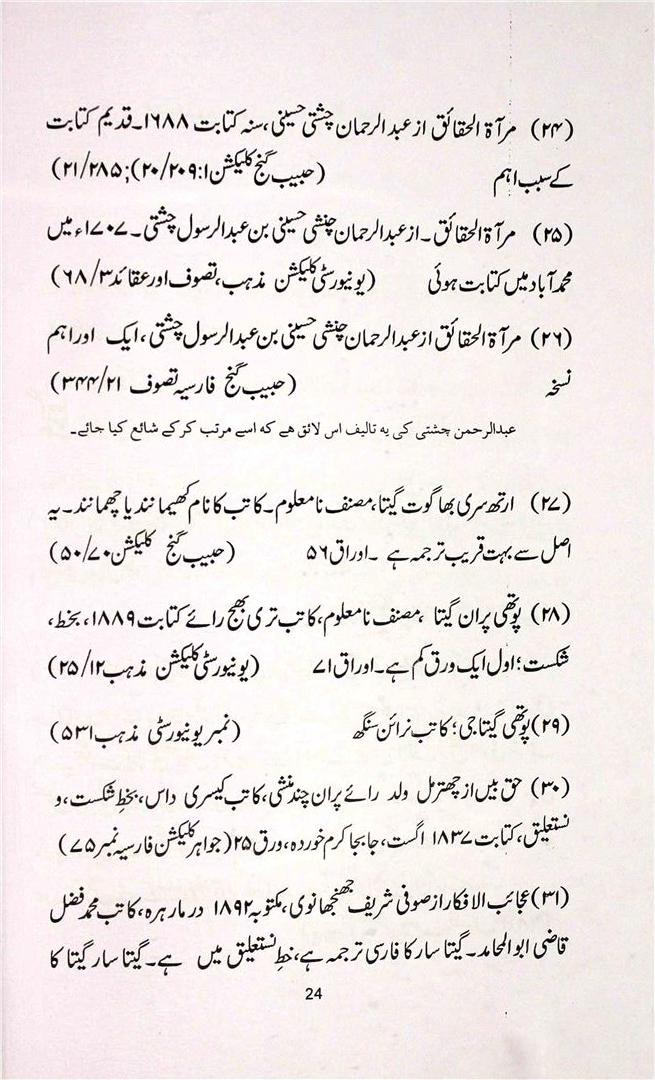 (۲۴) مرآۃ الحقائق از عبد الرحمان چشتی حسینی، سنہ کتابت ۱۶۸۸۔ قدیم کتابت
کے سبب اہم (حبیب گنج کلیکشن ۲۰/۲۰۹:۱); ۲۱/۲۸۵)
(۲۵) مرآۃ الحقائق۔ از عبدالرحمان چشتی حسینی بن عبدالرسول چشتی۔ ۱۷۰۷ء میں
محمد آباد میں کتابت ہوئی (یونیورسٹی کلیکشن مذہب، تصوف اور عقائد ۶۸/۳)
(۲۶) مرآۃ الحقائق از عبدالرحمان چشتی حسینی بن عبدالرسول چشتی، ایک اور اہم
نسخہ (حبیب گنج فارسیہ تصوف ۳۴۴/۲۱)
عبدالرحمن چشتی کی یہ تالیف اس لائق ھے کہ اسے مرتب کر کے شائع کیا جائے۔
(۲۷) ارتھ سری بھاگوت گیتا، مصنف نامعلوم۔ کاتب کا نام کھیما نند یا چھما نند۔ یہ
اصل سے بہت قریب ترجمہ ہے۔ اوراق ۵۶ (حبیب گنج کلیکشن ۵۰/۷۰)
(۲۸) پوتھی پران گیتا، مصنف نامعلوم، کاتب تری بھج رائے کتابت ۱۸۸۹، بخط،
شکست؛ اول ایک ورق کم ہے۔ اوراق ۷۱ (یونیورسٹی کلیکشن مذہب ۲۵/۱۲)
(۲۹) پوتھی گیتا جی؛ کاتب نرائن سنگھ (نمبر یونیورسٹی مذہب ۵۳۱)
(۳۰) حق بیں از چھترمل ولد رائے پران چند منشی، کاتب کیسری داس، بخطِ شکست، و
نستعلیق، کتابت ۱۸۳۷ اگست، جا بجا کرم خوردہ، ورق ۲۵ (جواہر کلیکشن فارسیہ نمبر ۷۵)
(۳۱) عجائب الافکار از صوفی شریف جھنجھانوی، مکتوبہ ۱۸۹۲ در مارہرہ، کاتب محمد فضل
قاضی ابوالحامد۔ گیتا سار کا فارسی ترجمہ ہے، خطِ نستعلیق میں ہے۔ گیتا سار گیتا کا
24